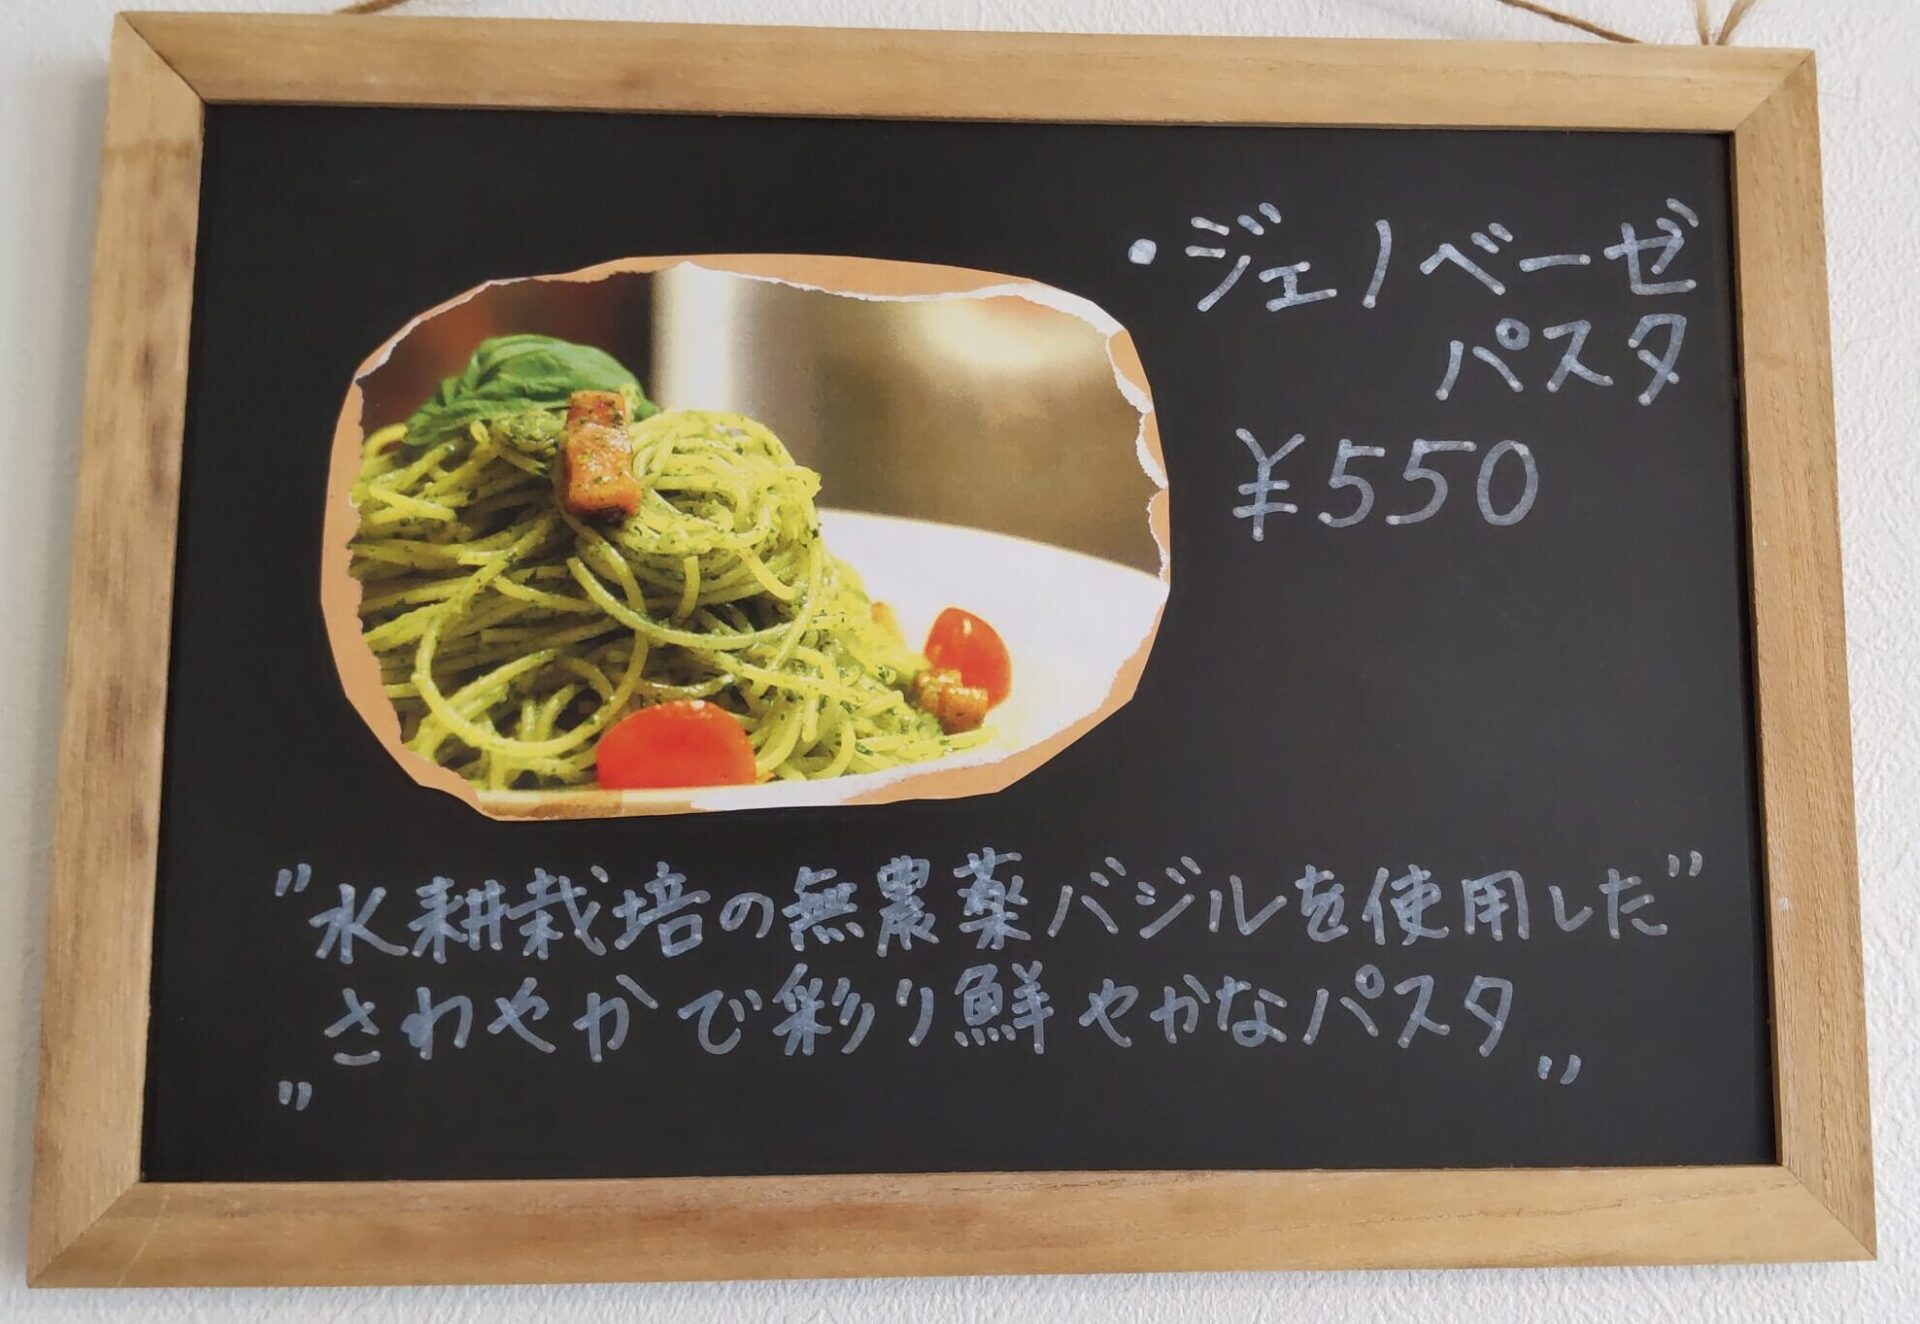 ・ジェノベーゼ
パスタ
¥550
"水耕栽培の無農薬バジルを使用した"
"さわやかで彩り鮮やかなパスタ"